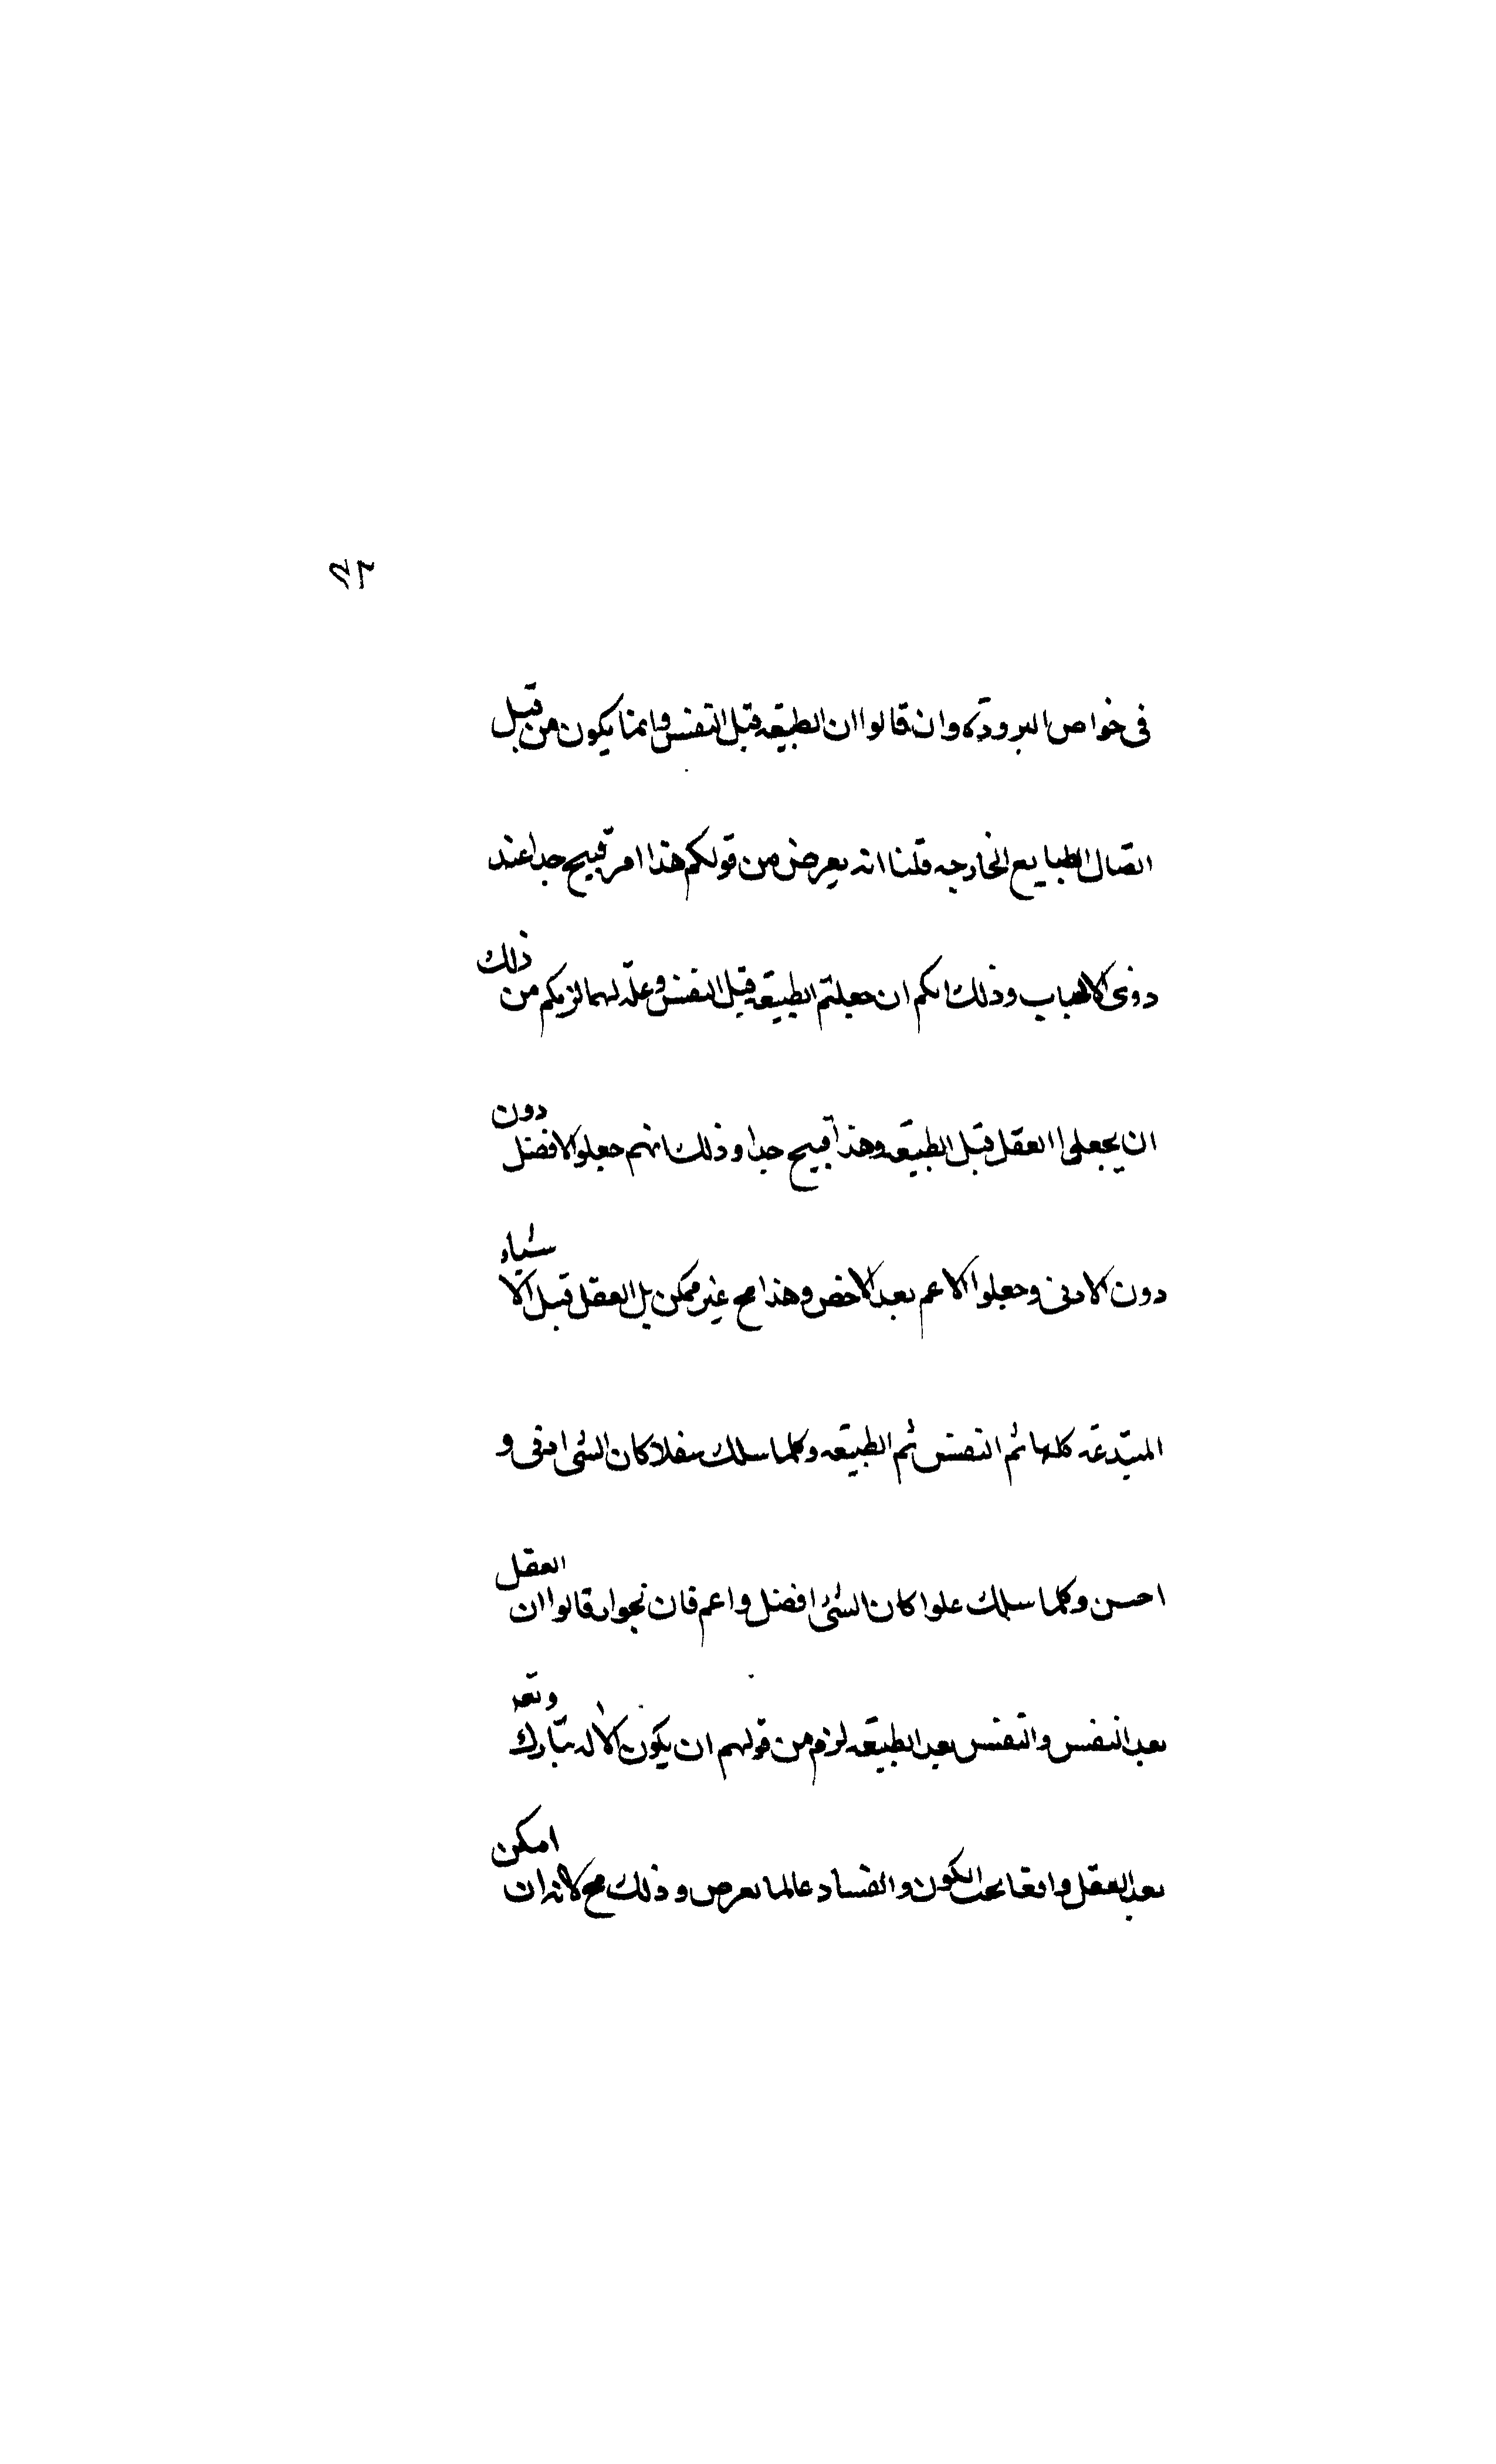 في خواص البرودة وان قالوا ان الطبيعه قبل النفس وانما يكون من قبل
اتصال الطبايع الخارجه قلنا انه يعرض من قولكم هذا امر قبيح جدا عند
ذوى الالباب وذلك انكم ان جعلتم الطبيعه قبل النفس وعلة لها لزمكم من ذلك
ان يجعلوا العقل قبل الطبيعه وهذا قبيح جدا وذلك انهم جعلوا الافضل دون
دون الادنى وجعلوا الاعم بعد الاخص وهذا مح غير ممكن بل العقل قبل الاشياء
المبتدعة كلها ثم النفس ثم الطبيعه وكلما سلك سفلا كان الشئ ادنى و
احسن وكلما سلك علوا كان الشئ افضل واعم فان قالوا ان العقل
بعد النفس والنفس بعد الطبيعه لزم من قولهم ان يكون الاله تبارك وتعه
بعد العقل واقعا تحت الكون والفساد عالما بعرض وذلك مح لانه ان امكن